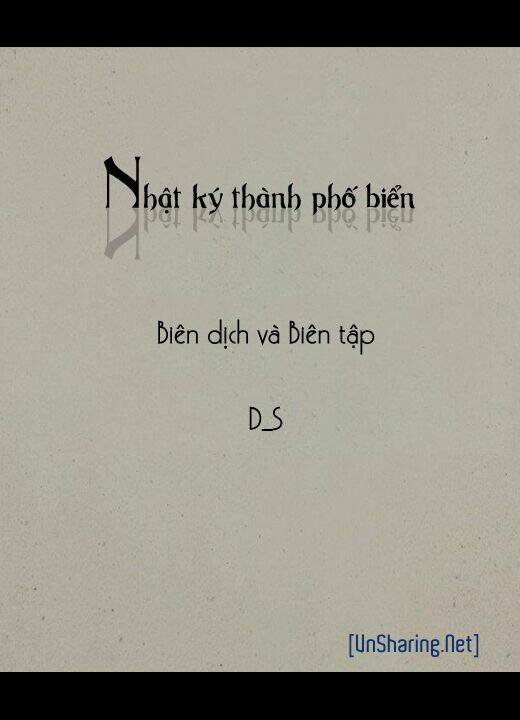 Nhật ký thành phố biển
Biên dịch và Biên tập
D_S
[UnSharing.Net]